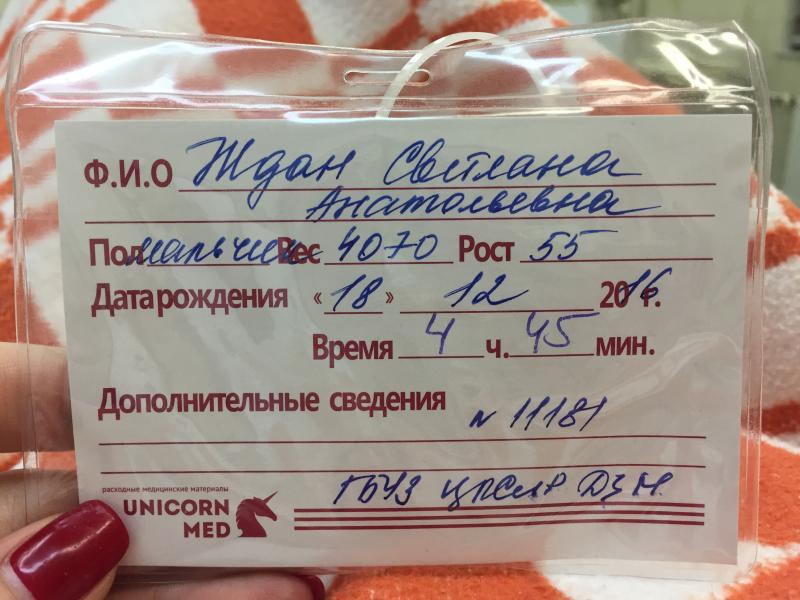 Ф.И.О Ждан Светлана
Анатольевна
Пол мальчик Вес 4070 Рост 55
Дата рождения «18» 12 2016 г.
Время 4 ч. 45 мин.
Дополнительные сведения
N 11181
расходные медицинские материалы
UNICORN
MED
ГБУЗ ЦПСиР ДЗМ